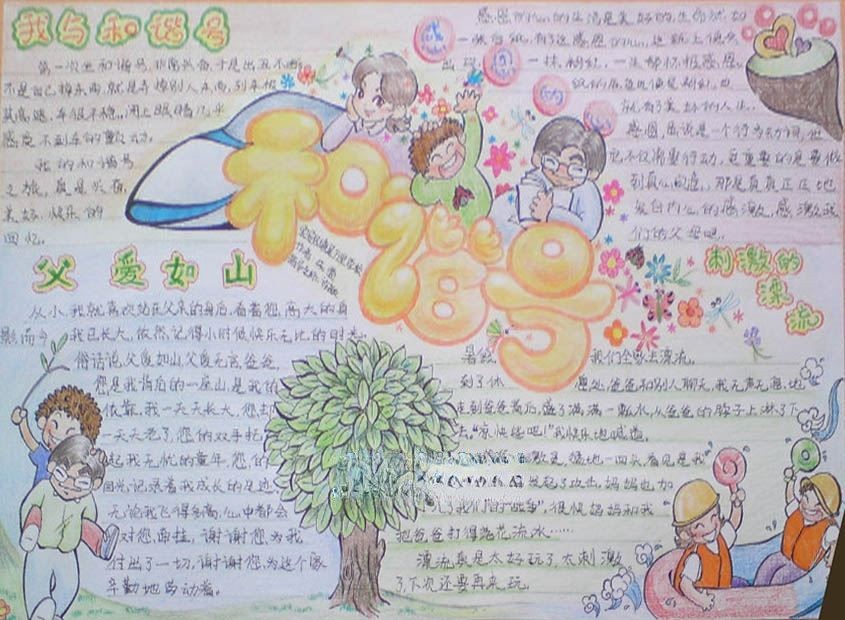 我与和谐号
第一次坐和谐号,非常兴奋,于是出丑不断,
不是自己掉东西,就是弄掉别人东西,列车极
其高贵,车很不稳。闭上眼睛几乎
感觉不到车的震动。
我的和谐号
之旅,真是兴奋,
美好,快乐的
回忆。
和谐号
感恩的心
感恩的心的生活是美好的,生命就如
一张白纸,有了这感恩的心,也就上使头
出现一抹粉红,一生都怀报感恩,
就有了美好的人生。
感恩,虽说是一个行为动词,但
它不仅需要行动,更重要的是要做
到真心向道,那是真真正正地
发自内心的感激,感激我
们的父母吧。
父爱如山
从小,我就喜欢站在父亲的身后,看着您高大的身
影而今,我已长大,依然记得小时候快乐无比的时光
俗话说,父爱如山父爱无言,爸爸,
您是我背后的一座山是我的
依靠,我一天天长大,您却
一天天老了,您的双手托
起我无忧的童年,您的
目光记录着我成长的足迹,
无论我飞得多高,心中都会
对您牵挂,谢谢您,为我
付出了一切,谢谢您,为这个家
辛勤地劳动着。
刺激的漂流
暑假,我们全家去漂流。
到了休息处,爸爸和别人聊天,我无声无息地
走到爸爸背后,盛了满满一瓢水,从爸爸的脖子上淋了下
去,“凉快些吧!”我快乐地喊道。
猛地一回头,看见是我
发起了攻击,妈妈也加
很快,妈妈和我
把爸爸打得落花流水……
漂流真是太好玩了,太刺激
了,下次还要再来玩。